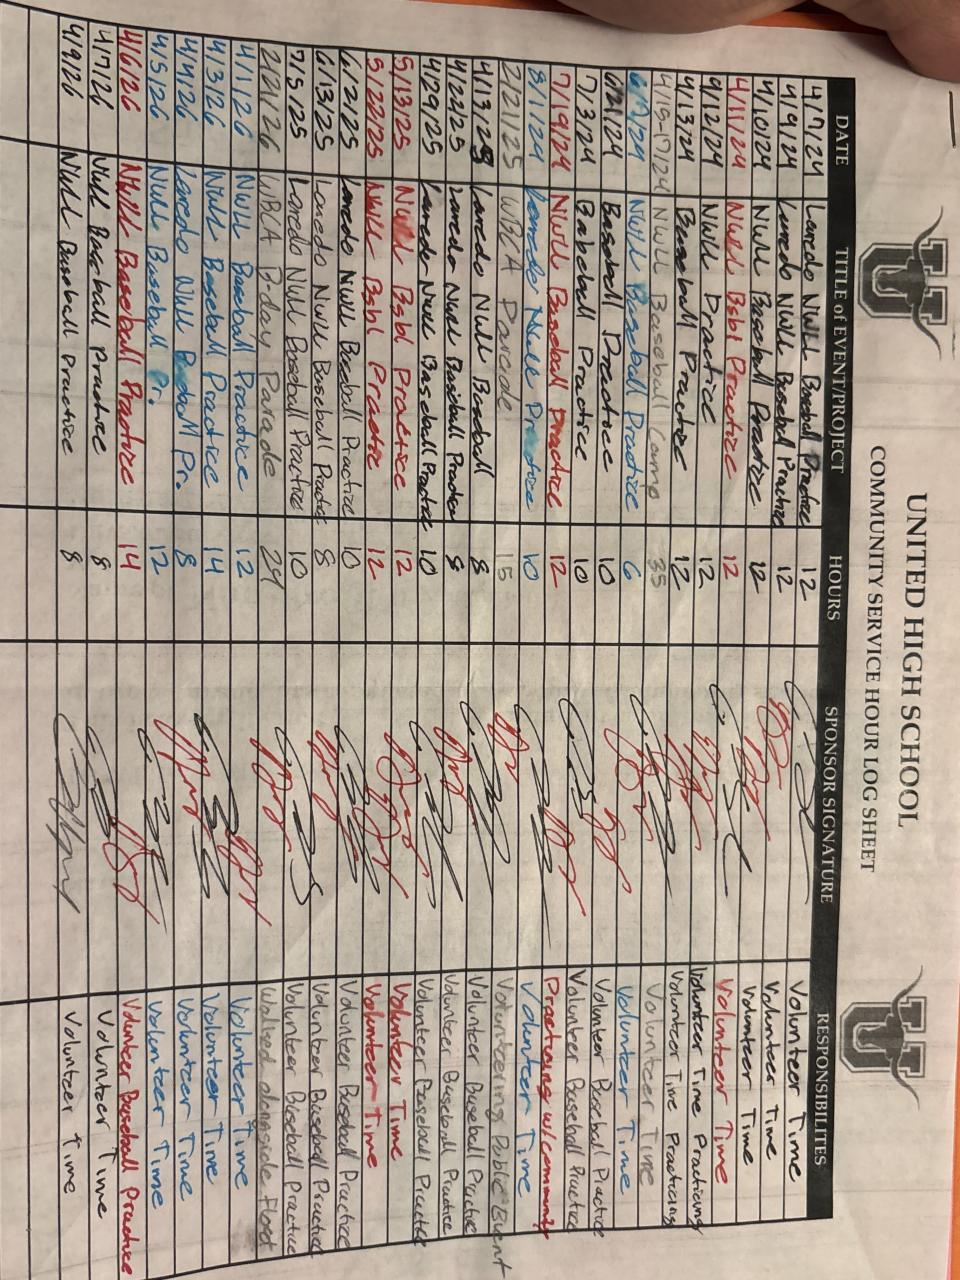 UNITED HIGH SCHOOL
COMMUNITY SERVICE HOUR LOG SHEET
DATE TITLE of EVENT/PROJECT HOURS SPONSOR SIGNATURE RESPONSIBILITES
4/7/24 Laredo NWLL Baseball Practice 12 Volunteer Time
4/9/24 Laredo NWLL Baseball Practice 12 Volunteer Time
4/10/24 NWLL Baseball Practice 12 Volunteer Time
4/11/24 NWLL Bsbl Practice 12 Volunteer Time
4/12/24 NWLL Practice 12 Volunteer Time Practicing
4/13/24 Baseball Practice 12 Volunteer Time Practicing
4/15-17/24 NWLL Baseball Camp 35 Volunteer Time
NWLL Baseball Practice 6 Volunteer Time
Baseball Practice 10 Volunteer Baseball Practice
7/3/24 Baseball Practice 10 Volunteer Baseball Practice
7/19/24 NWLL Baseball Practice 12 Practicing w/community
8/1/24 Laredo NWLL Practice 10 Volunteer Time
2/21/25 WBCA Parade 15 Volunteering Public Event
4/13/25 Laredo NWLL Baseball 8 Volunteer Baseball Practice
4/24/25 Laredo NWLL Baseball Practice 8 Volunteer Baseball Practice
4/29/25 Laredo NWLL Baseball Practice 10 Volunteer Baseball Practice
5/13/25 NWLL Bsbl Practice 12 Volunteer Time
5/22/25 NWLL Bsbl Practice 12 Volunteer Time
6/2/25 Laredo NWLL Baseball Practice 10 Volunteer Baseball Practice
6/13/25 Laredo NWLL Baseball Practice 8 Volunteer Baseball Practice
7/5/25 Laredo NWLL Baseball Practice 10 Volunteer Baseball Practice
2/21/26 WBCA B-day Parade 24 Walked alongside Float
4/1/26 NWLL Baseball Practice 12 Volunteer Time
4/3/26 NWLL Baseball Practice 14 Volunteer Time
4/4/26 Laredo NWLL Baseball Pr. 8 Volunteer Time
4/5/26 NWLL Baseball Pr. 12 Volunteer Time
4/6/26 NWLL Baseball Practice 14 Volunteer Baseball Practice
4/7/26 NWLL Baseball Practice 8 Volunteer Time
4/9/26 NWLL Baseball Practice 8 Volunteer Time